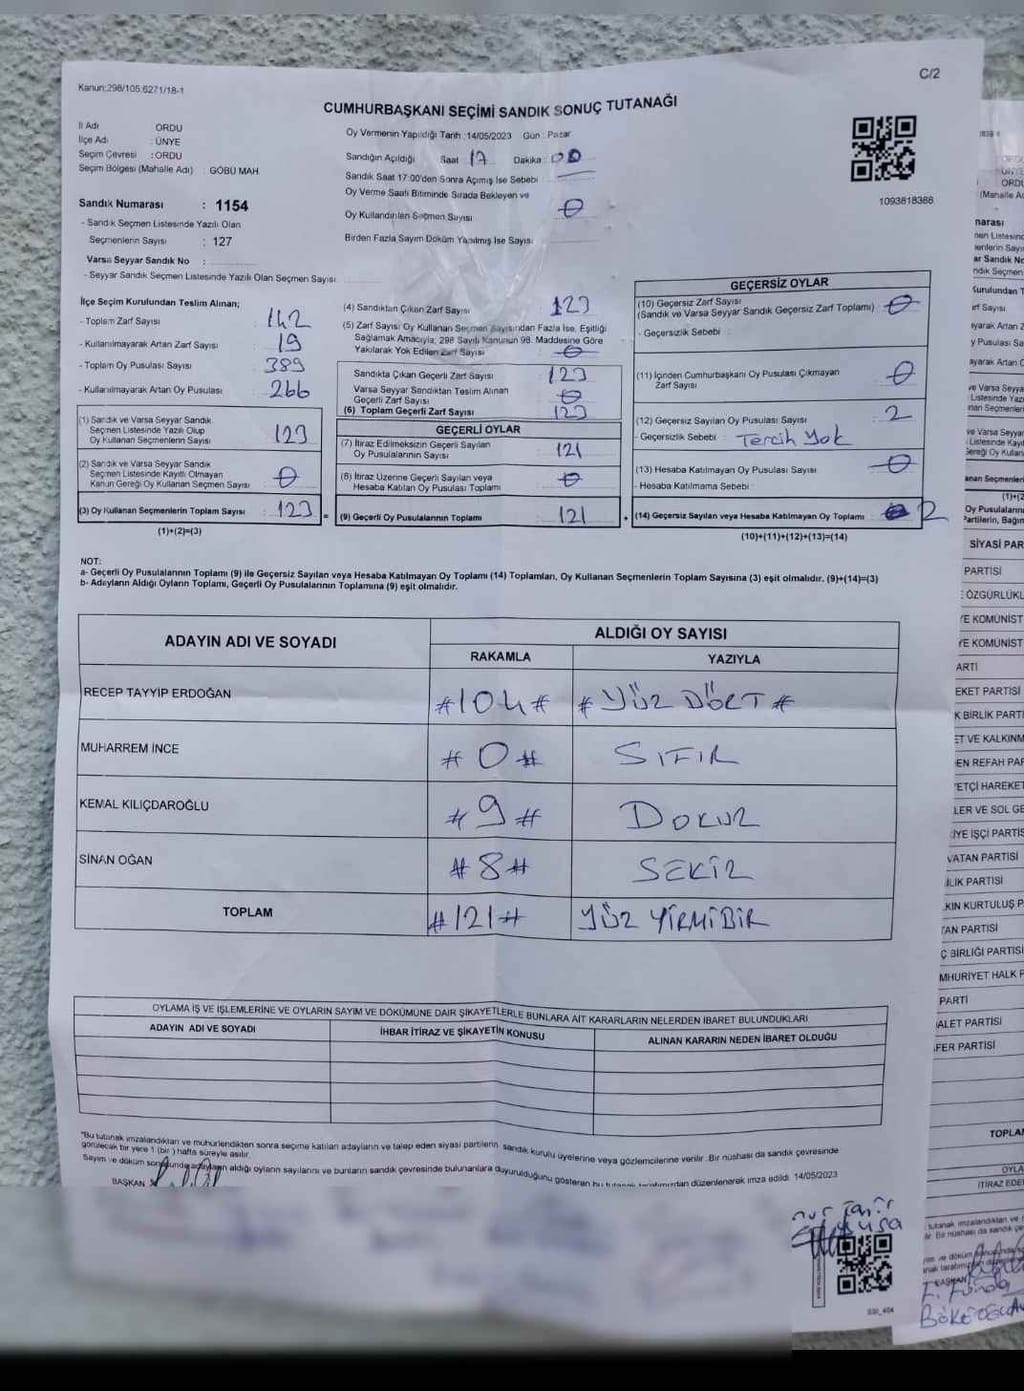 C/2
Kanun:298/105.6271/18-1
CUMHURBAŞKANI SEÇİMİ SANDIK SONUÇ TUTANAĞI
İl Adı ORDU
İlçe Adı : ÜNYE
Seçim Çevresi : ORDU
Seçim Bölgesi (Mahalle Adı) : GÖBÜ MAH.
Sandık Numarası : 1154
- Sandık Seçmen Listesinde Yazılı Olan
Seçmenlerin Sayısı : 127
Varsa Seyyar Sandık No :
- Seyyar Sandık Seçmen Listesinde Yazılı Olan Seçmen Sayısı
Oy Vermenin Yapıldığı Tarih :14/05/2023 Gün : Pazar
Sandığın Açıldığı Saat 17 Dakika : 00
Sandık Saat 17:00'den Sonra Açımış İse Sebebi
Oy Verme Saati Bitiminde Sırada Bekleyen ve
Oy Kullandırılan Seçmen Sayısı 0
Birden Fazla Sayım Döküm Yapılmış İse Sayısı
1093818386
İlçe Seçim Kurulundan Teslim Alınan;
- Toplam Zarf Sayısı : 142
- Kullanılmayarak Artan Zarf Sayısı : 19
- Toplam Oy Pusulası Sayısı : 389
- Kullanılmayarak Artan Oy Pusulası : 266
(1) Sandık ve Varsa Seyyar Sandık
Seçmen Listesinde Yazılı Olup
Oy Kullanan Seçmenlerin Sayısı : 123
(2) Sandık ve Varsa Seyyar Sandık
Seçmen Listesinde Kayıtlı Olmayan
Kanun Gereği Oy Kullanan Seçmen Sayısı : 0
(3) Oy Kullanan Seçmenlerin Toplam Sayısı : 123
(1)+(2)=(3)
(4) Sandıktan Çıkan Zarf Sayısı 123
(5) Zarf Sayısı Oy Kullanan Seçmen Sayısından Fazla İse, Eşitliği
Sağlamak Amacıyla, 298 Sayılı Kanunun 98. Maddesine Göre
Yakılarak Yok Edilen Zarf Sayısı 0
Sandıkta Çıkan Geçerli Zarf Sayısı : 123
Varsa Seyyar Sandıktan Teslim Alınan
Geçerli Zarf Sayısı : 0
(6) Toplam Geçerli Zarf Sayısı : 123
GEÇERLİ OYLAR
(7) İtiraz Edilmeksizin Geçerli Sayılan
Oy Pusulalarının Sayısı : 121
(8) İtiraz Üzerine Geçerli Sayılan veya
Hesaba Katılan Oy Pusulası Toplamı : 0
= (9) Geçerli Oy Pusulalarının Toplamı : 121
GEÇERSİZ OYLAR
(10) Geçersiz Zarf Sayısı
(Sandık ve Varsa Seyyar Sandık Geçersiz Zarf Toplamı) : 0
- Geçersizlik Sebebi :
(11) İçinden Cumhurbaşkanı Oy Pusulası Çıkmayan
Zarf Sayısı : 0
(12) Geçersiz Sayılan Oy Pusulası Sayısı : 2
- Geçersizlik Sebebi : Tercih Yok
(13) Hesaba Katılmayan Oy Pusulası Sayısı : 0
- Hesaba Katılmama Sebebi :
+ (14) Geçersiz Sayılan veya Hesaba Katılmayan Oy Toplamı : 2
(10)+(11)+(12)+(13)=(14)
NOT:
a- Geçerli Oy Pusulalarının Toplamı (9) ile Geçersiz Sayılan veya Hesaba Katılmayan Oy Toplamı (14) Toplamları, Oy Kullanan Seçmenlerin Toplam Sayısına (3) eşit olmalıdır. (9)+(14)=(3)
b- Adayların Aldığı Oyların Toplamı, Geçerli Oy Pusulalarının Toplamına (9) eşit olmalıdır.
ADAYIN ADI VE SOYADI ALDIĞI OY SAYISI
RAKAMLA YAZIYLA
RECEP TAYYİP ERDOĞAN #104# # YÜZ DÖRT #
MUHARREM İNCE # 0 # SIFIR
KEMAL KILIÇDAROĞLU # 9 # DOKUZ
SİNAN OĞAN # 8 # SEKİZ
TOPLAM #121# YÜZ YİRMİBİR
OYLAMA İŞ VE İŞLEMLERİNE VE OYLARIN SAYIM VE DÖKÜMÜNE DAİR ŞİKAYETLERLE BUNLARA AİT KARARLARIN NELERDEN İBARET BULUNDUKLARI
ADAYIN ADI VE SOYADI İHBAR İTİRAZ VE ŞİKAYETİN KONUSU ALINAN KARARIN NEDEN İBARET OLDUĞU
"Bu tutanak imzalandıktan ve mühürlendikten sonra seçime katılan adayların ve talep eden siyasi partilerin, sandık kurulu üyelerine veya gözlemcilerine verilir. Bir nüshası da sandık çevresinde
görülecek bir yere 1 (bir) hafta süreyle asılır.
Sayım ve döküm sonunda adayların aldığı oyların sayılarını ve bunların sandık çevresinde bulunanlara duyurulduğunu gösteren bu tutanak tarafımızdan düzenlenerek imza edildi. 14/05/2023
BAŞKAN
SİYASİ PAR
PARTİSİ
ÖZGÜRLÜKL
YE KOMÜNİST
YE KOMÜNİST
ARTİ
EKET PARTİSİ
K BİRLİK PARTİ
ET VE KALKINM
DEN REFAH PAR
YETÇİ HAREKET
LER VE SOL GE
İYE İŞÇİ PARTİS
VATAN PARTİSİ
İLİK PARTİSİ
KIN KURTULUŞ P
TAN PARTİSİ
Ç BİRLİĞİ PARTİSİ
MHURİYET HALK P
PARTİ
ALET PARTİSİ
FER PARTİSİ
TOPLAM
OYLA
İTİRAZ EDE
BAŞKAN